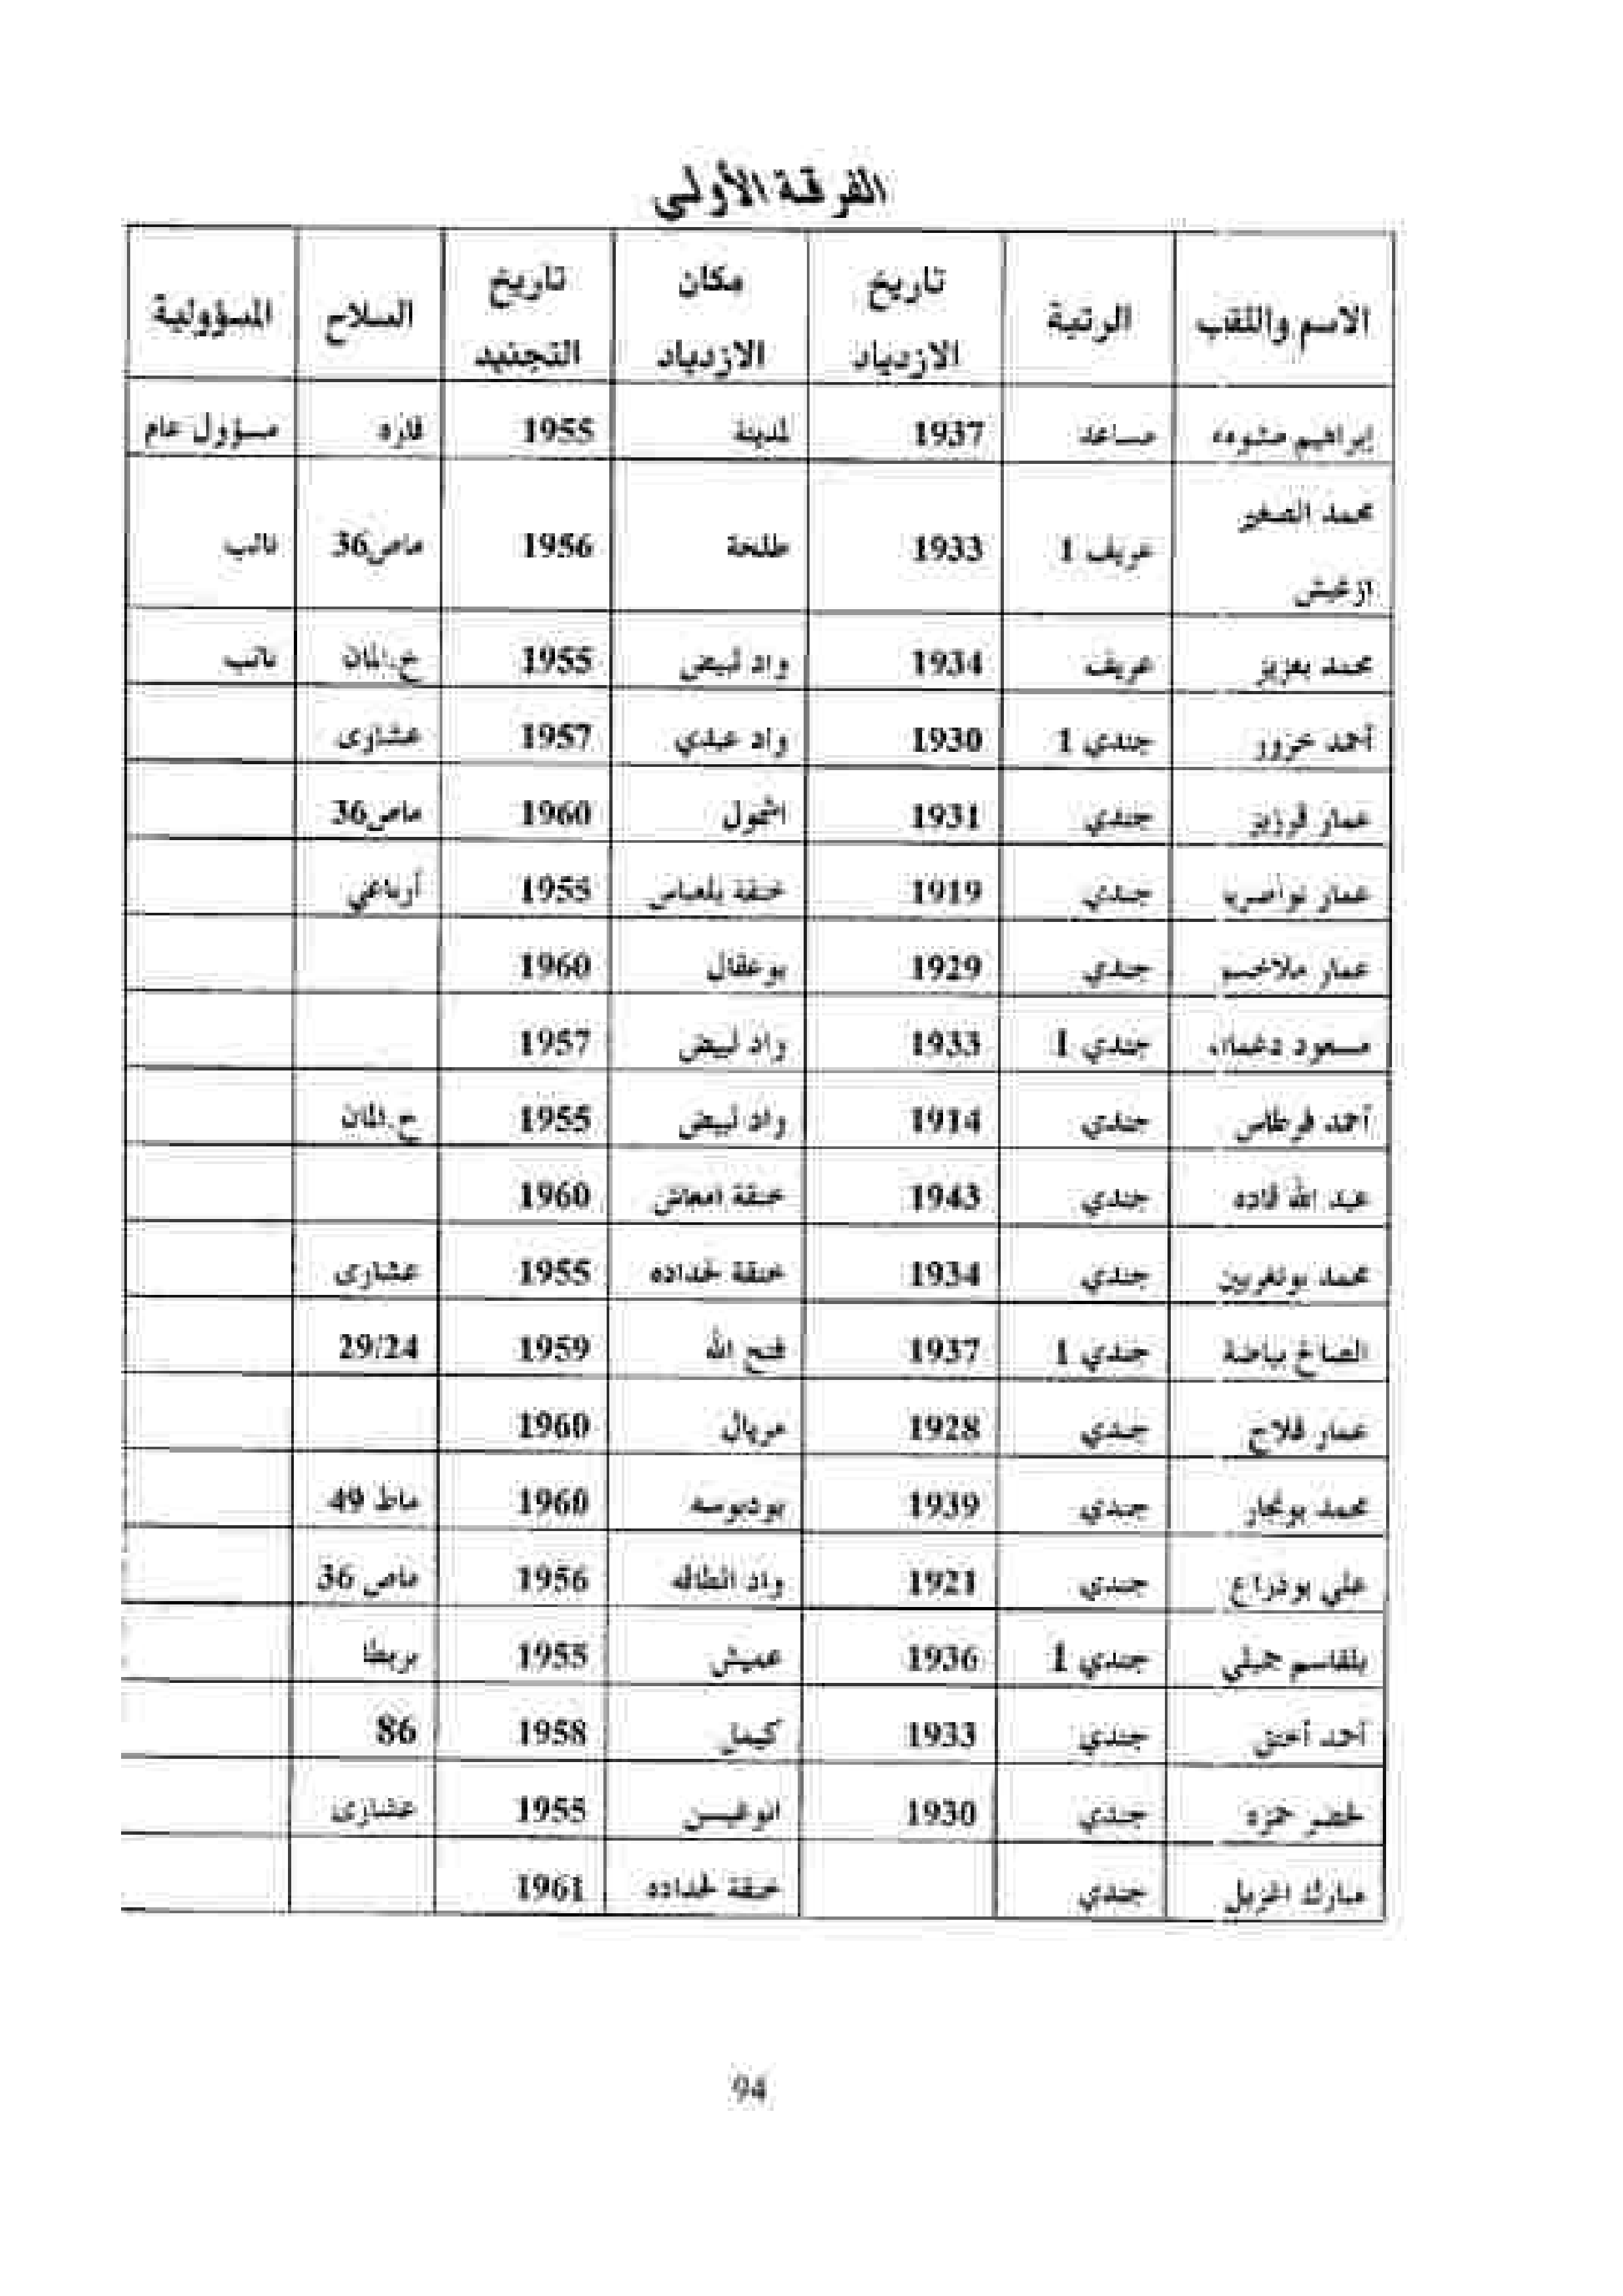 الفرقة الأولى
الاسم واللقب الرتبة تاريخ الازدياد مكان الازدياد تاريخ التجنيد السلاح المسؤولية
إبراهيم مساعد 1937 لمدينة 1955 قاره مسؤول عام
محمد الصغير عريف 1 1933 طلحة 1956 ماص36 نائب
محمد بعزيز عريف 1934 واد لبيض 1955 خ.المان نائب
أحمد خزور جندي 1 1930 واد عبدي 1957 عشارى
عمار قرزيز جندي 1931 اشمول 1960 ماص36
عمار نواصريه جندي 1919 خنقة بلعباس 1955 أرباعي
عمار ملاخسو جندي 1929 بوعقال 1960
مسعود جندي 1 1933 واد لبيض 1957
أحمد قرطاس جندي 1914 واد لبيض 1955 خ.المان
عبد الله قاده جندي 1943 خنقة امعاش 1960
محمد بوتغرين جندي 1934 خنقة لحداده 1955 عشارى
الصالح بياضة جندي 1 1937 فتح الله 1959 29/24
عمار فلاح جندي 1928 مريال 1960
محمد بونجار جندي 1939 بودبوسه 1960 ماط 49
علي بوذراع جندي 1921 واد الطاقه 1956 ماص 36
بلقاسم جميلي جندي 1 1936 عميش 1955 بريطا
أحمد أخنق جندي 1933 كيمل 1958 86
لخضر حمزه جندي 1930 انوغيسن 1955 عشارى
مبارك الخزيل جندي خنقة لحداده 1961
94